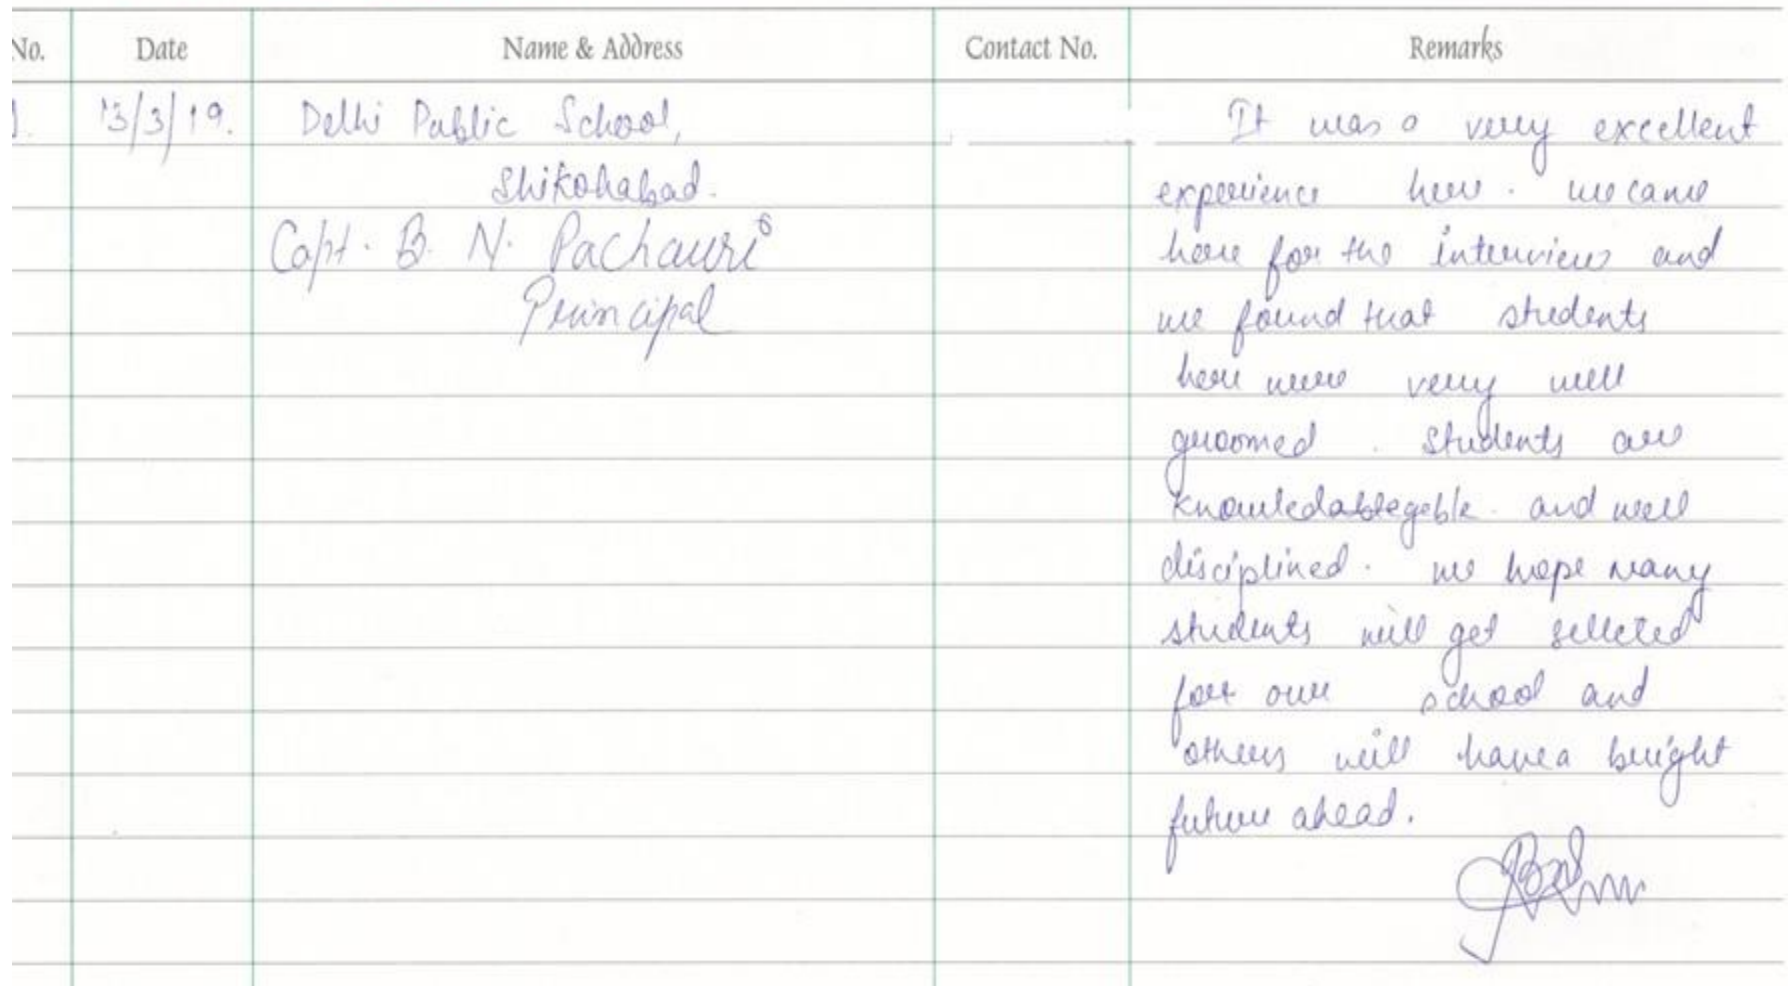 No. Date Name & Address Contact No. Remarks
1. 13/3/19. Delhi Public School,
Shikohabad.
Capt. B. N. Pachauri
Principal
It was a very excellent
experience here. we came
here for the interview and
we found that students
here were very well
groomed. Students are
knowledablegeble and well
disciplined. we hope many
students will get sellcted
for our school and
others will have a bright
future ahead.